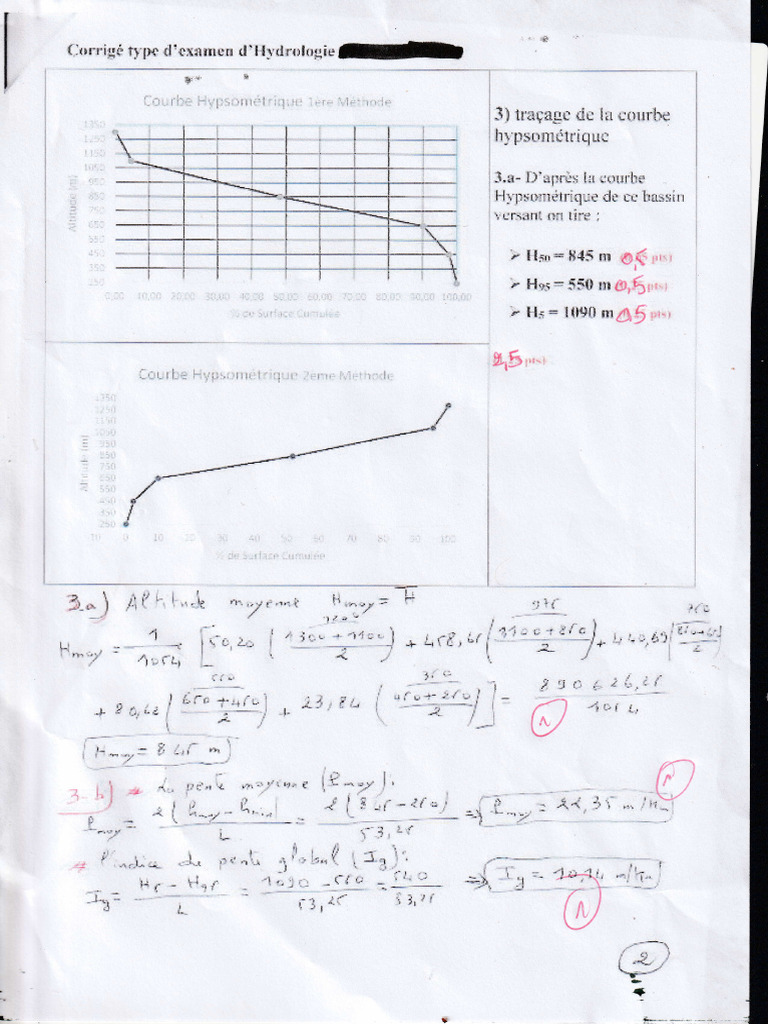 Corrigé type d'examen d'Hydrologie
Courbe Hypsométrique 1ère Méthode
Altitude (m)
1350
1250
1150
1050
950
850
750
650
550
450
350
250
0,00 10,00 20,00 30,00 40,00 50,00 60,00 70,00 80,00 90,00 100,00
% de Surface Cumulée
3) traçage de la courbe
hypsométrique
3.a- D'après la courbe
Hypsométrique de ce bassin
versant on tire :
➢ H50 = 845 m 0,5 pts)
➢ H95 = 550 m 0,5 pts)
➢ H5 = 1090 m 0,5 pts)
2,5 pts)
Courbe Hypsométrique 2eme Méthode
Altitude (m)
1350
1250
1150
1050
950
850
750
650
550
450
350
250
10 0 10 20 30 40 50 60 70 80 90 100
% de Surface Cumulée
3.a) Altitude moyenne Hmoy = H̅
1200 975 750
Hmoy = 1/1054 [50,20 (1300+1100/2) + 458,65 (1100+850/2) + 440,69 (850+650/2)
550 350
+ 80,62 (650+450/2) + 23,84 (450+250/2)] = 890626,25/1054
1
Hmoy = 845 m
3-b) * La pente moyenne (Pmoy):
Pmoy = 2(hmoy-hmin)/L = 2(845-250)/53,25 => Pmoy = 22,35 m/Km
1
* l'indice de pente global (Ig):
Ig = H5 - H95/L = 1090-550/53,25 = 540/53,25 => Ig = 10,14 m/km
1
2